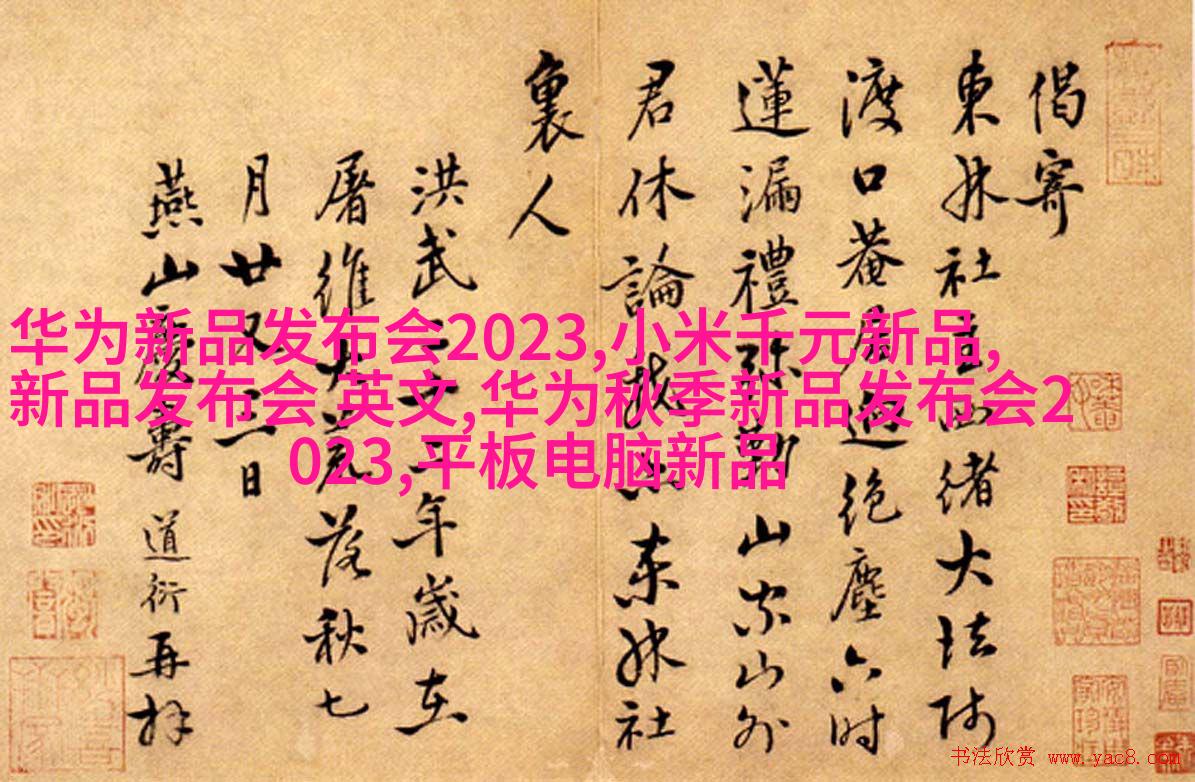 偈寄
東林社主西緒大法師
渡口菴居迥絕塵六時
蓮漏禮弥勒山家山外
君休論 东林社
裏人
洪武二十二年歲在
屠維大荒落秋七
月廿又三日
燕山慶壽道衍再拜
华为新品发布会2023,小米千元新品,
新品发布会 英文,华为秋季新品发布会2
023,平板电脑新品
书法欣赏 www.yac8.com